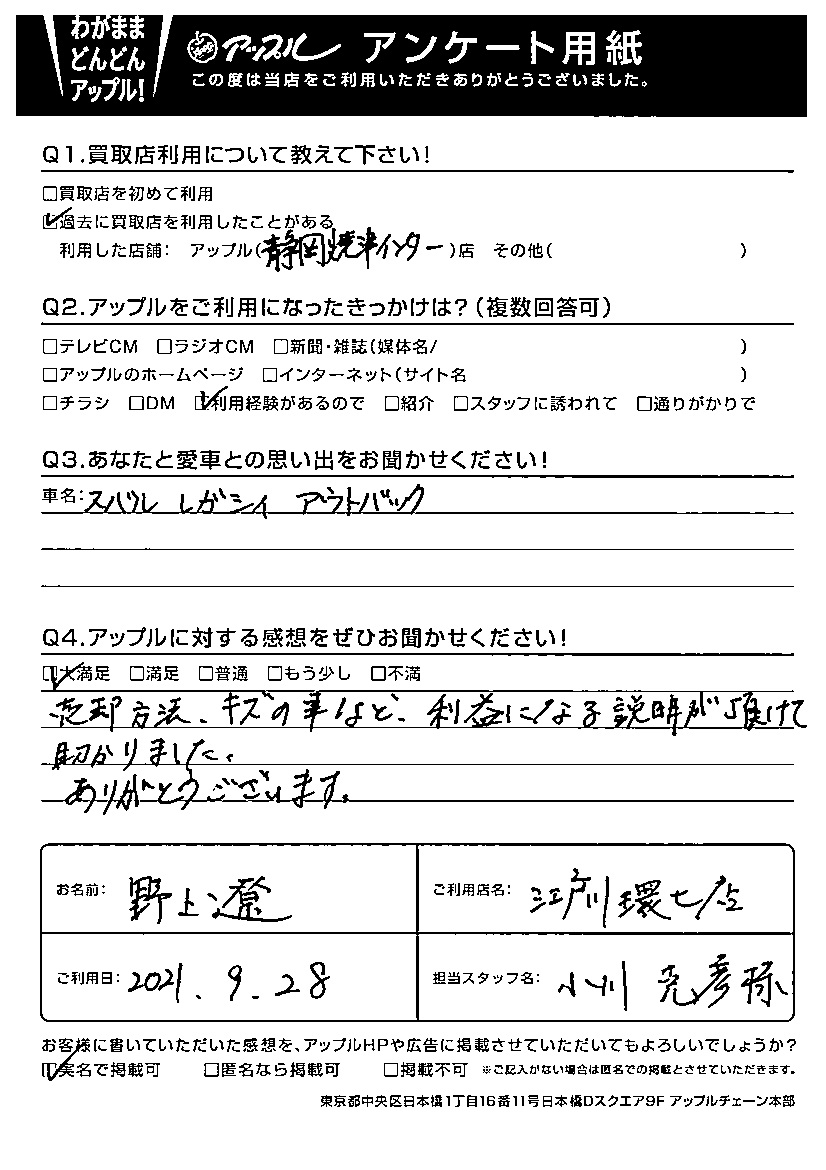 わがまま
どんどん
アップル!
アップル アンケート用紙
この度は当店をご利用いただきありがとうございました。
Q1.買取店利用について教えて下さい!
□買取店を初めて利用
☑過去に買取店を利用したことがある
利用した店舗: アップル(静岡焼津インター)店 その他( )
Q2.アップルをご利用になったきっかけは?(複数回答可)
□テレビCM □ラジオCM □新聞・雑誌(媒体名/ )
□アップルのホームページ □インターネット(サイト名 )
□チラシ □DM ☑利用経験があるので □紹介 □スタッフに誘われて □通りがかりで
Q3.あなたと愛車との思い出をお聞かせください!
車名:スバル レガシィ アウトバック
Q4.アップルに対する感想をぜひお聞かせください!
☑大満足 □満足 □普通 □もう少し □不満
売却方法、キズの事など、利益になる説明が頂けて
助かりました。
ありがとうございます。
お名前: 野上遼
ご利用店名: 江戸川環七店
ご利用日: 2021.9.28
担当スタッフ名: 小川 亮彦様
お客様に書いていただいた感想を、アップルHPや広告に掲載させていただいてもよろしいでしょうか?
☑実名で掲載可 □匿名なら掲載可 □掲載不可 ※ご記入がない場合は匿名での掲載とさせていただきます。
東京都中央区日本橋1丁目16番11号日本橋Dスクエア9F アップルチェーン本部